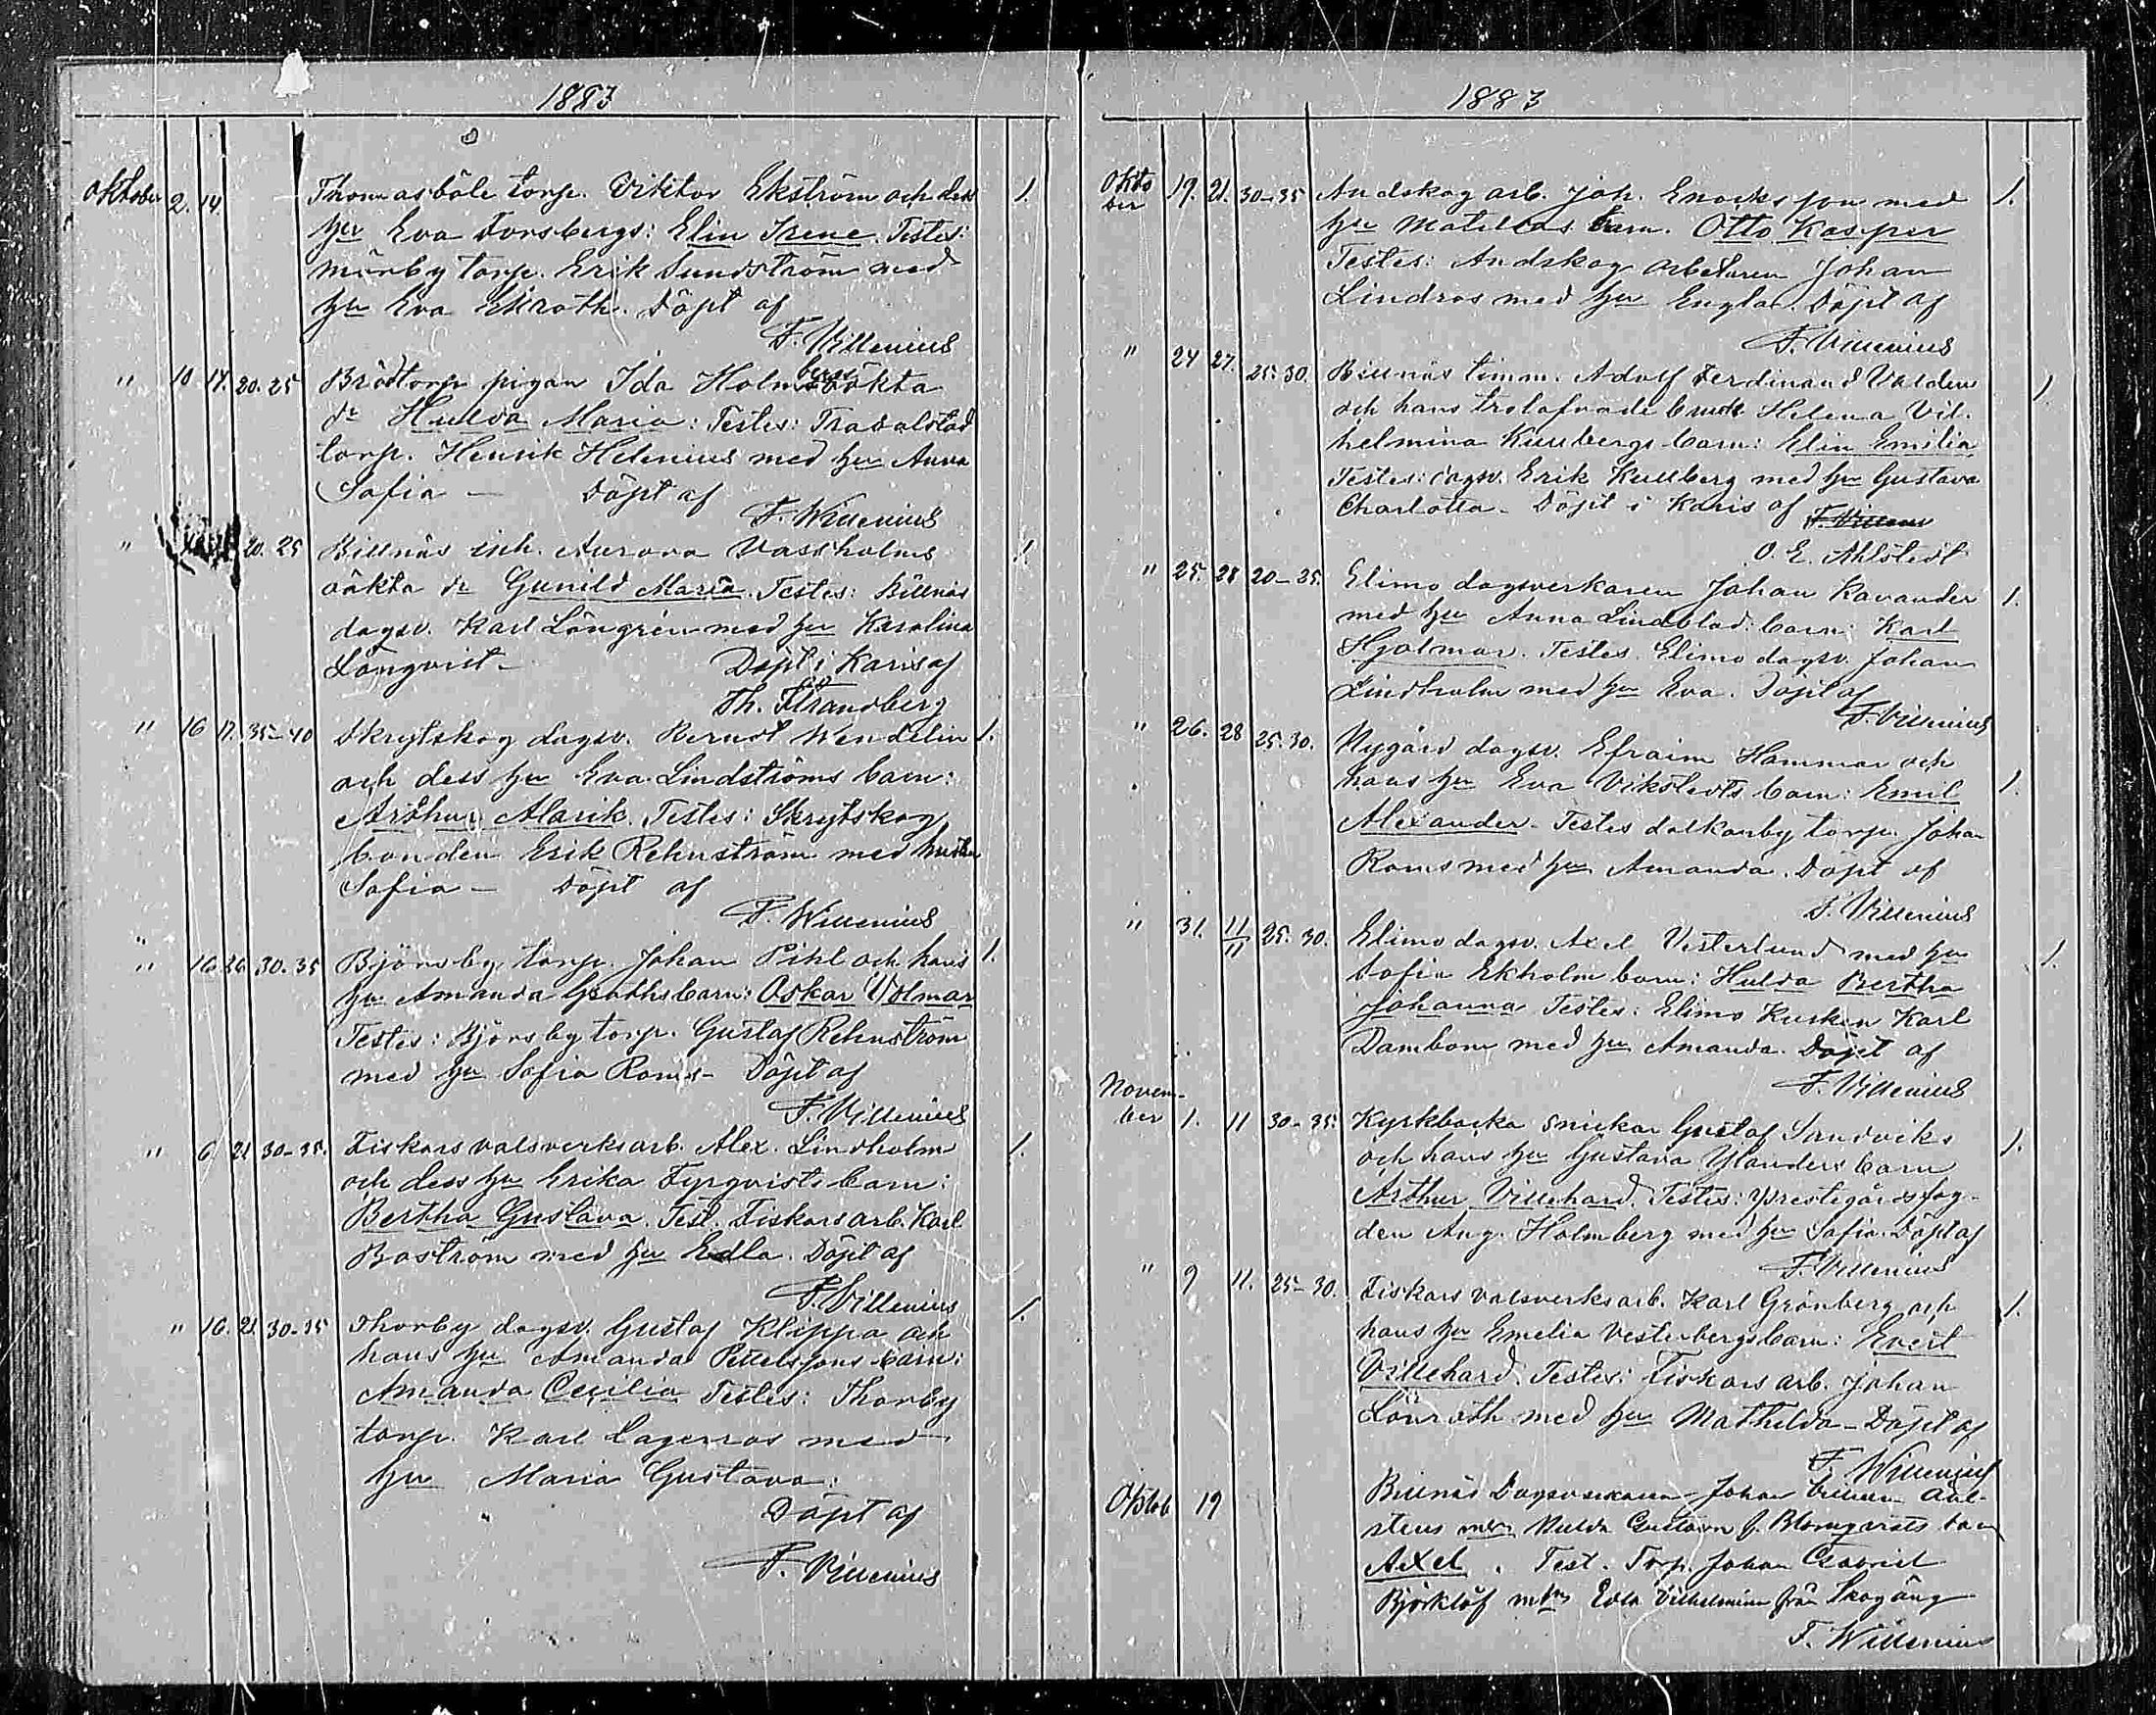 1883
Oktober 2. 14. Thomasböle torp. Viktor Ekström och dess 1.
hu Eva Forsbergs: Elin Irene. Testes:
Mörby torp. Erik Sundström med
hu Eva Ekroth. Döpt af
F. Willenius
" 10 14. 20. 25 Brödtorp pigan Ida Holmbergs oäkta
dr Hulda Maria: Testes:
torp. Henrik Helenius med hu Anna
Sofia — Döpt af
F. Willenius
" 20. 25 Billnäs inh. Aurora Vassholms 1.
oäkta dr Gunild Maria. Testes: Billnäs
dagsv. Karl Löngren med hu Karolina
Lönqvist — Döpt i Karis af
Th. Strandberg
" 16 17. 35-40 Skrytskog dagsv. Berndt Wendelin 1.
och dess hu Eva Lindströms barn:
Arthur Alarik. Testes: Skrytskog
bonden Erik Rehnström med hustru
Sofia — Döpt af
F. Willenius
" 16 26 30. 35 Björsby torp. Johan Pihl och hans 1.
hu Amanda Groths barn: Oskar Volmar
Testes: Björsby torp. Gustaf Rehnström
med hu Sofia Roms — Döpt af
F. Willenius
" 6 21 30-35. Fiskars valsverksarb. Alex. Lindholm 1.
och dess hu Erika Fyrqvists barn:
Bertha Gustava. Test. Fiskars arb. Karl
Boström med hu Edla. Döpt af
F. Villenius
" 16. 21 30-35 Thorby dagsv. Gustaf Klippa och 1.
hans hu Amanda Pettersons barn:
Amanda Cecilia Testes: Thorby
torp. Karl Lagerros med
hu Maria Gustava:
Döpt af
F. Villenius
1883
Oktober 19. 21. 30-35 Andskog arb. Joh. Enocksson med 1.
hu Matildas barn. Otto Kasper
Testes: Andskog arbetaren Johan
Lindros med hu Engla. Döpt af
F. Villenius
" 24 27. 25. 30. Billnäs timm. Adolf Ferdinand Valden 1.
och hans trolofvade brud Helena Vil-
helmina Kullbergs barn: Elin Emilia
Testes: dagsv. Erik Kullberg med hu Gustava
Charlotta — Döpt i Karis af F. Villenius
O. E. Ahlstedt
" 25. 28 20-25. Elimo dagsverkaren Johan Kavander 1.
med hu Anna Lindblad: barn: Karl
Hjalmar. Testes. Elimo dagsv. Johan
Lindholm med hu Eva. Döpt af
F. Villenius
" 26. 28 25. 30. Nygård dagsv. Efraim Hammar och
hans hu Eva Vikstedts barn: Emil 1.
Alexander. Testes dalkarby torp. Johan
Roms med hu Amanda. Döpt af
F. Villenius
" 31. 11/11 25. 30. Elimo dagsv. Axel Vesterlund med hu 1.
Sofia Ekholm barn: Hulda Bertha
Johanna Testes: Elimo Kusken Karl
Dambom med hu Amanda. Döpt af
F. Villenius
November 1. 11 30-35. Kyrkbacka Snickar Gustaf Sandviks 1.
och hans hu Gustava Ylanders barn
Arthur Villehard. Testes: Prestgårdsfog-
den Aug. Holmberg med hu Sofia. Döpt af
F. Villenius
" 9 11. 25-30. Fiskars valsverksarb. Karl Grönberg och 1.
hans hu Emelia Vesterbergs barn: Evert
Villehard. Testes: Fiskars arb. Johan
Lönroth med hu Mathilda — Döpt af
F. Willenius
Oktob 19 Billnäs Dagsverkaren Johan Ahl-
stens Hulda Gustava J. Blomqvists barn
Axel. Test. Torp. Johan Gabriel
Björklöf Edla Vilhelmina från Skogäng
F. Willenius